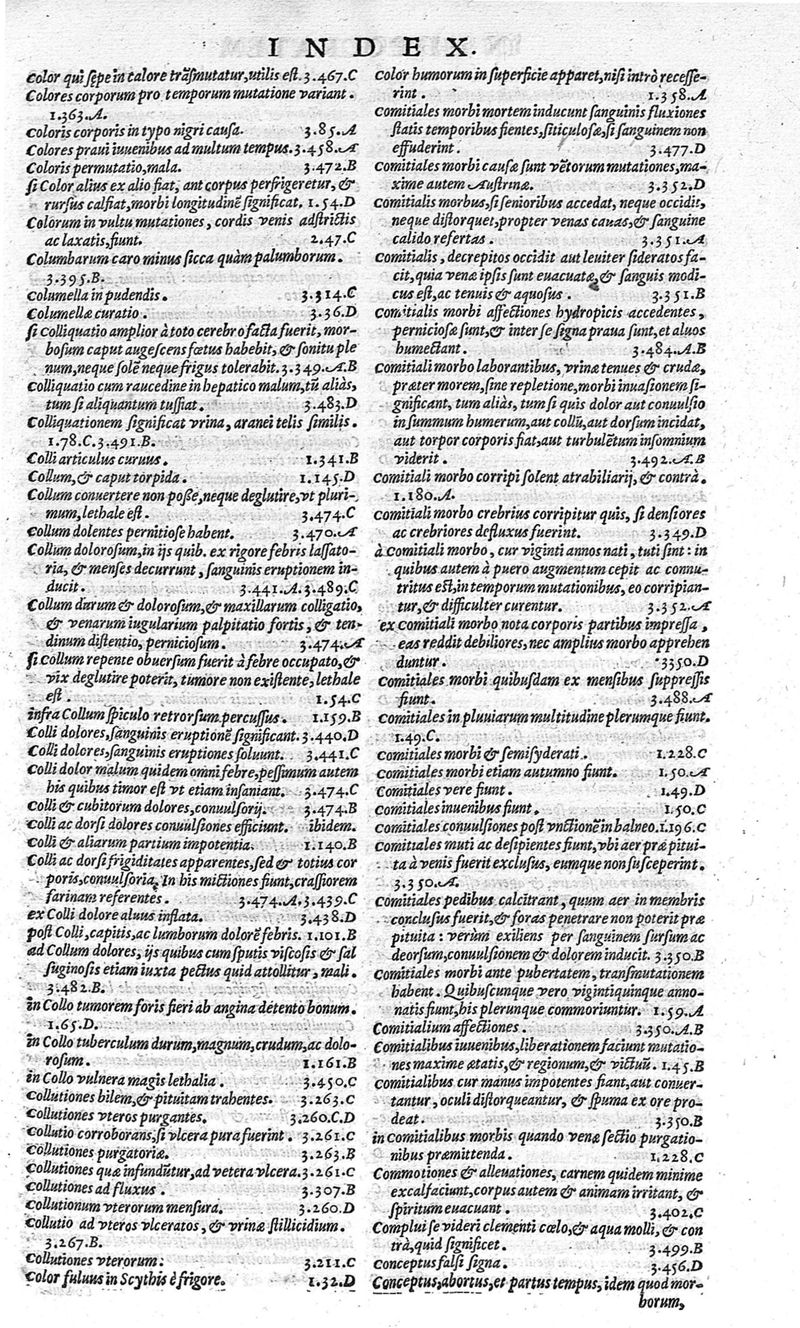 INDEX.
Color qui sępe in calore trãsmutatur,utilis est.3.467.C
Colores corporum pro temporum mutatione variant.
1.363.A.
Coloris corporis in typo nigri causa. 3.85.A
Colores praui iuuenibus ad multum tempus.3.458.A
Coloris permutatio,mala. 3.472.B
si Color alius ex alio fiat, aut corpus perfrigeretur, &
rursus calfiat,morbi longitudinẽ significat. 1.54.D
Colorum in vultu mutationes, cordis venis adstrictis
ac laxatis,fiunt. 2.47.C
Columbarum caro minus sicca quàm palumborum.
3.395.B.
Columella in pudendis. 3.314.C
Columellæ curatio. 3.36.D
si Colliquatio amplior à toto cerebro facta fuerit, mor-
bosum caput augescens fœtus habebit, & sonitu ple
num,neque solẽ neque frigus tolerabit.3.349.A.B
Colliquatio cum raucedine in hepatico malum,tũ aliàs,
tum si aliquantum tussiat. 3.483.D
Colliquationem significat vrina, aranei telis similis.
1.78.C.3.491.B.
Colli articulus curuus. 1.341.B
Collum,& caput torpida. 1.145.D
Collum conuertere non posse,neque deglutire,vt pluri-
mum,lethale est. 3.474.C
Collum dolentes pernitiose habent. 3.470.A
Collum dolorosum,in ijs quib. ex rigore febris lassato-
ria, & menses decurrunt, sanguinis eruptionem in-
ducit. 3.441.A.3.489.C
Collum durum & dolorosum,& maxillarum colligatio,
& venarum iugularium palpitatio fortis, & ten-
dinum distentio, perniciosum. 3.474.A
si Collum repente obuersum fuerit à febre occupato,&
vix deglutire poterit, tumore non existente, lethale
est. 1.54.C
infra Collum spiculo retrorsum percussus. 1.159.B
Colli dolores,sanguinis eruptionẽ significant.3.440.D
Colli dolores,sanguinis eruptiones soluunt. 3.441.C
Colli dolor malum quidem omni febre,pessimum autem
his quibus timor est vt etiam insaniant. 3.474.C
Colli & cubitorum dolores,conuulsorij. 3.474.B
Colli ac dorsi dolores conuulsiones efficiunt. ibidem.
Colli & aliarum partium impotentia. 1.140.B
Colli ac dorsi frigiditates apparentes,sed & totius cor
poris,conuulsoria. In his mictiones fiunt,crassiorem
farinam referentes. 3.474.A.3.439.C
ex Colli dolore aluus inflata. 3.438.D
post Colli,capitis,ac lumborum dolorẽ febris. 1.101.B
ad Collum dolores, ijs quibus cum sputis viscosis & sal
suginosis etiam iuxta pectus quid attollitur, mali.
3.482.B.
in Collo tumorem foris fieri ab angina detento bonum.
1.65.D.
in Collo tuberculum durum,magnum,crudum,ac dolo-
rosum. 1.161.B
in Collo vulnera magis lethalia. 3.450.C
Collutiones bilem,& pituitam trahentes. 3.263.C
Collutiones vteros purgantes. 3.260.C.D
Collutio corroborans,si vlcera pura fuerint. 3.261.C
Collutiones purgatoriæ. 3.263.B
Collutiones quæ infundũtur,ad vetera vlcera.3.261.C
Collutiones ad fluxus. 3.307.B
Collutionum vterorum mensura. 3.260.D
Collutio ad vteros vlceratos, & vrinæ stillicidium.
3.267.B.
Collutiones vterorum: 3.211.C
Color fuluus in Scythis è frigore. 1.32.D
Color humorum in superficie apparet,nisi intrò recesse-
rint. 1.358.A
Comitiales morbi mortem inducunt sanguinis fluxiones
statis temporibus fientes,siticulosæ,si sanguinem non
effuderint. 3.477.D
Comitiales morbi causæ sunt vẽtorum mutationes,ma-
xime autem Austrinæ. 3.352.D
Comitialis morbus,si senioribus accedat, neque occidit,
neque distorquet,propter venas cauas,& sanguine
calido refertas. 3.351.A
Comitialis, decrepitos occidit aut leuiter sideratos fa-
cit,quia venæ ipsis sunt euacuatæ,& sanguis modi-
cus est,ac tenuis & aquosus. 3.351.B
Comitialis morbi affectiones hydropicis accedentes,
perniciosæ sunt,& inter se signa praua sunt,et aluos
humectant. 3.484.A.B
Comitiali morbo laborantibus, vrinæ tenues & crudæ,
præter morem,sine repletione,morbi inuasionem si-
gnificant, tum aliàs, tum si quis dolor aut conuulsio
in summum humerum,aut collũ,aut dorsum incidat,
aut torpor corporis fiat,aut turbulẽtum insomnium
viderit. 3.492.A.B
Comitiali morbo corripi solent atrabiliarij, & contrà.
1.180.A.
Comitiali morbo crebrius corripitur quis, si densiores
ac crebriores defluxus fuerint. 3.349.D
à Comitiali morbo, cur viginti annos nati, tuti sint: in
quibus autem à puero augmentum cepit ac connu-
tritus est,in temporum mutationibus, eo corripian-
tur,& difficulter curentur. 3.352.A
ex Comitiali morbo nota corporis partibus impressa,
eas reddit debiliores, nec amplius morbo apprehen
duntur. 3350.D
Comitiales morbi quibusdam ex mensibus suppressis
fiunt. 3.488.A
Comitiales in pluuiarum multitudine plerumque fiunt.
1.49.C.
Comitiales morbi & semisyderati. 1.228.C
Comitiales morbi etiam autumno fiunt. 1.50.A
Comitiales vere fiunt. 1.49.D
Comitiales inuenibus fiunt. 1.50.C
Comitiales conuulsiones post vnctionẽ in balneo.1.196.C
Comitiales muti ac desipientes fiunt,vbi aer præ pitui-
ta à venis fuerit exclusus, eumque non susceperint.
3.350.A.
Comitiales pedibus calcitrant, quum aer in membris
conclusus fuerit,& foras penetrare non poterit præ
pituita: verùm exiliens per sanguinem sursum ac
deorsum,conuulsionem & dolorem inducit. 3.350.B
Comitiales morbi ante pubertatem, transmutationem
habent. Quibuscunque vero vigintiquinque anno-
natis fiunt,his plerunque commoriuntur. 1.59.A
Comitialium affectiones. 3.350.A.B
Comitialibus iuuenibus,liberationem faciunt mutatio-
nes maxime ætatis,& regionum,& victuũ. 1.45.B
Comitialibus cur manus impotentes fiant,aut conuer-
tantur, oculi distorqueantur, & spuma ex ore pro-
deat. 3.350.B
in Comitialibus morbis quando venæ sectio purgatio-
nibus præmittenda. 1.228.C
Commotiones & alleuationes, carnem quidem minime
excalfaciunt,corpus autem & animam irritant, &
spiritum euacuant. 3.402.C
Complui se videri clementi cœlo,& aqua molli, & con
trà,quid significet. 3.499.B
Conceptus falsi signa. 3.456.D
Conceptus,abortus,et partus tempus, idem quod mor-
borum,